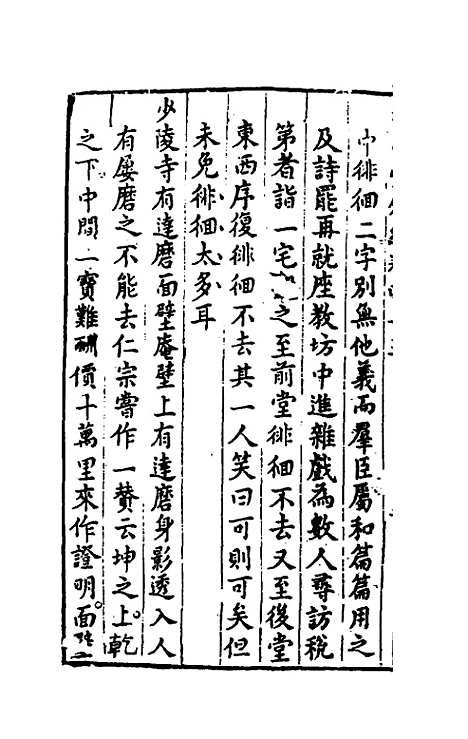 中徘徊二字別無他義而羣臣屬和篇篇用之
及詩罷再就座教坊中進雜戲為數人尋訪稅
第者詣一宅之至前堂徘徊不去又至後堂
東西序復徘徊不去其一人笑曰可則可矣但
未免徘徊太多耳
少陵寺有達磨面壁庵壁上有達磨身影透入人
有屡磨之不能去仁宗嘗作一賛云坤之上乾
之下中間一寶難酬價十萬里來作證明面壁